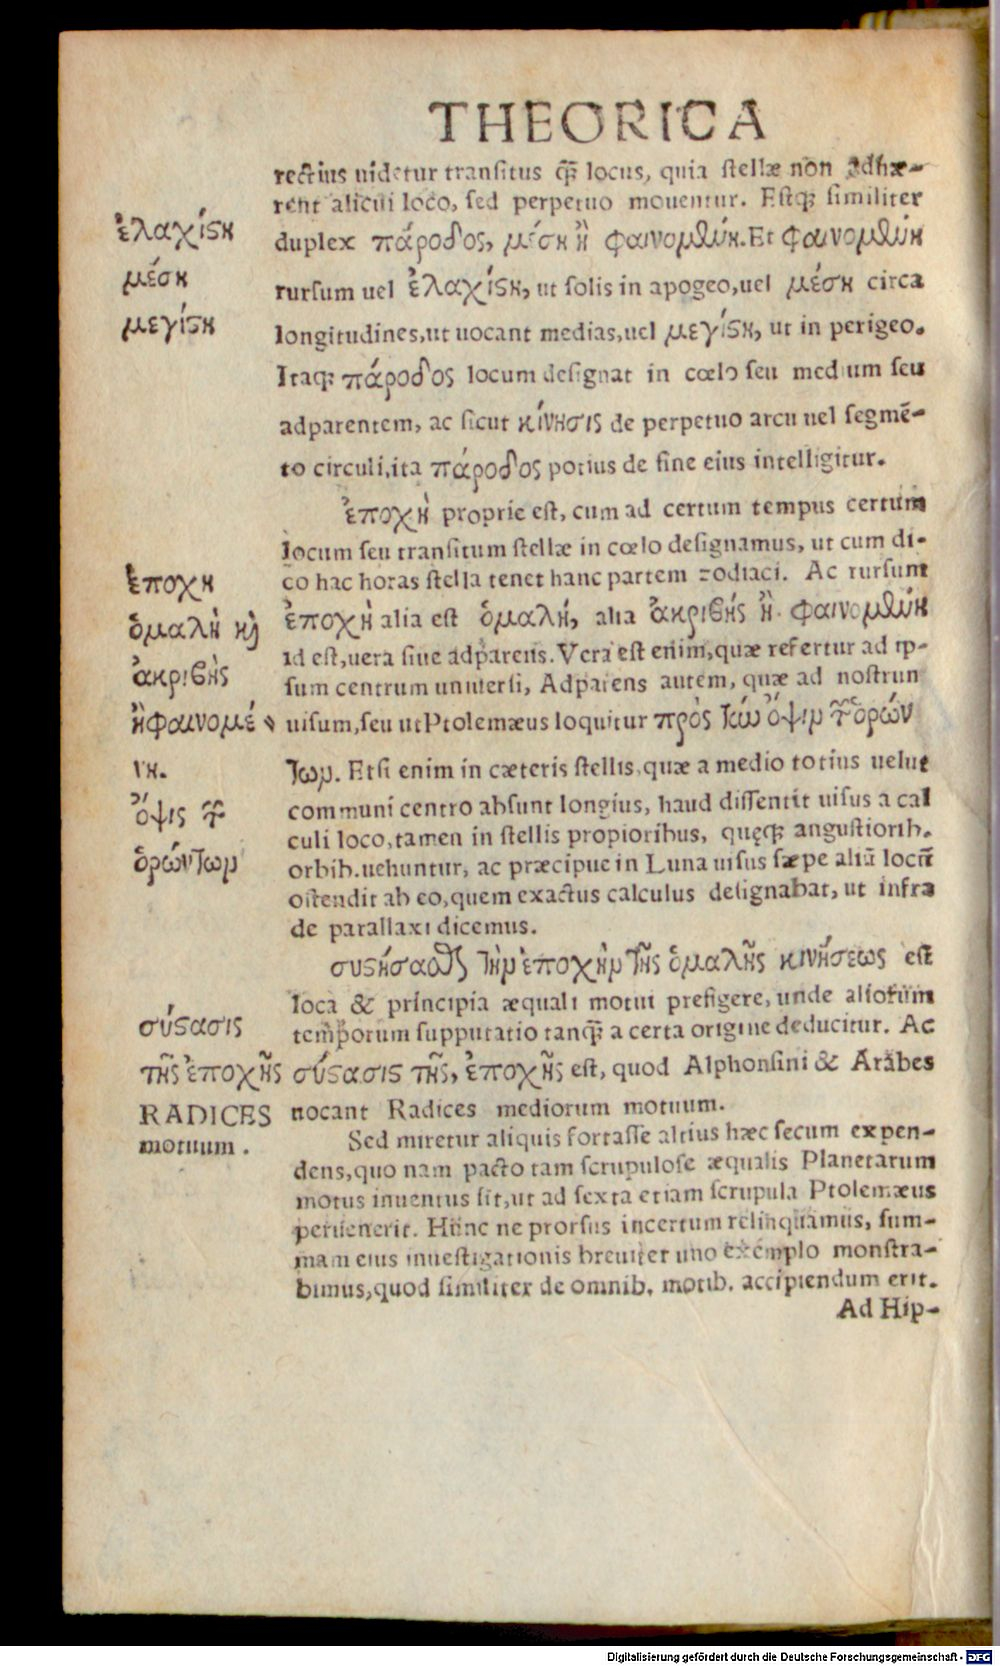 THEORICA
rectius uidetur transitus q̃ꝫ locus, quia stellæ non adhæ-
rent alicui loco, sed perpetuo mouentur. Estqꝫ similiter
duplex πάροδος, μέση ἢ φαινομένη. Et φαινομένη
rursum uel ἐλαχίϛη, ut solis in apogeo, uel μέση circa
longitudines, ut uocant medias, uel μεγίϛη, ut in perigeo.
Itaqꝫ πάροδος locum designat in cœlo seu medium seu
adparentem, ac sicut κίνησις de perpetuo arcu uel segmē-
to circuli, ita πάροδος potius de fine eius intelligitur.
ἐποχὴ proprie est, cum ad certum tempus certum
locum seu transitum stellæ in cœlo designamus, ut cum di-
co hac horas stella tenet hanc partem zodiaci. Ac rursum
ἐποχὴ alia est ὁμαλή, alia ἀκριβής ἢ φαινομένη
id est, uera siue adparens. Vera est enim, quæ refertur ad ip-
sum centrum uniuersi, Adparens autem, quæ ad nostrum
uisum, seu ut Ptolemæus loquitur πρὸς τὼ ὄψιν τ͂ ὁρών
των. Etsi enim in cæteris stellis, quæ a medio totius uelut
communi centro absunt longius, haud dissentit uisus a cal
culi loco, tamen in stellis propioribus, quęqꝫ angustiorib.
orbib. uehuntur, ac præcipue in Luna uisus sæpe aliū locū
ostendit ab eo, quem exactus calculus designabat, ut infra
de parallaxi dicemus.
συϛήσαϑ τὴν ἐποχὴν τῆς ὁμαλῆς κινήσεως est
loca & principia æquali motui prefigere, unde aliorum
temporum supputatio tanq̃ꝫ a certa origine deducitur. Ac
σύϛασις τῆς, ἐποχῆς est, quod Alphonsini & Arabes
uocant Radices mediorum motuum.
Sed miretur aliquis fortasse altius hæc secum expen-
dens, quo nam pacto tam scrupulose æqualis Planetarum
motus inuentus sit, ut ad sexta etiam scrupula Ptolemæus
peruenerit. Hunc ne prorsus incertum relinquamus, sum-
mam eius inuestigationis breuiter uno exemplo monstra-
bimus, quod similiter de omnib. motib. accipiendum erit.
Ad Hip-
ἐλαχίϛη
μέση
μεγίϛη
ἐποχη
ὁμαλὴ κỳ
ἀκριβὴς
ἢ φαινομέ
νη.
ὄψις τ͂
ὁρώντων
σύϛασις
τῆς ἐποχῆς
RADICES
motuum.
Digitalisierung gefördert durch die Deutsche Forschungsgemeinschaft - DFG